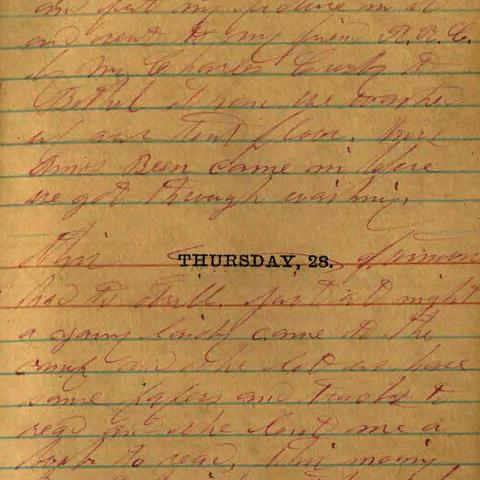 and put my picture in it
and sent it to my friend A. B. C.
by Mr Charles Cu to
Bethel at home we washed
up our tent floor. there
Amos Been came in before
we got through washing.
THURSDAY, 28.
This afternoon
had to drill. Just at night
a young lady came to the
camp and she let us have
some papers and tracks to
read and she lent me a
book to read, this morning